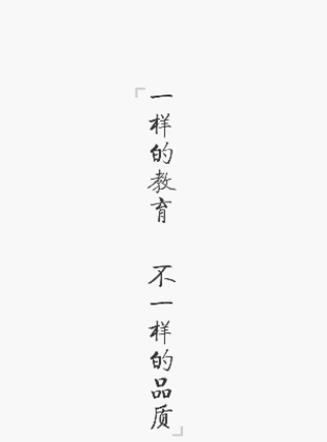 「一样的教育 不一样的品质」